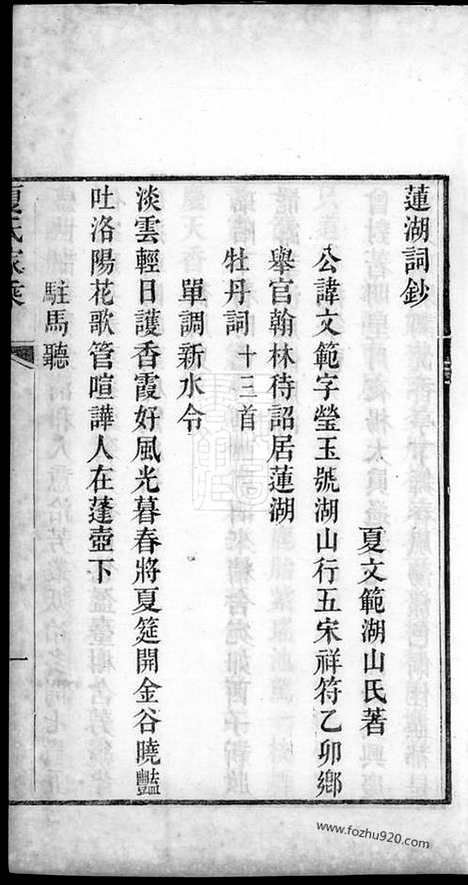 蓮湖詞鈔
夏文範湖山氏著
公諱文範字瑩玉號湖山行五宋祥符乙卯鄉
舉官翰林待詔居蓮湖
牡丹詞十三首
單調新水令
淡雲輕日護香霞好風光暮春將夏筵開金谷曉豔
吐洛陽花歌管喧譁人在蓬壺下
駐馬聽
夏氏家乘
一
www.fozhu920.com